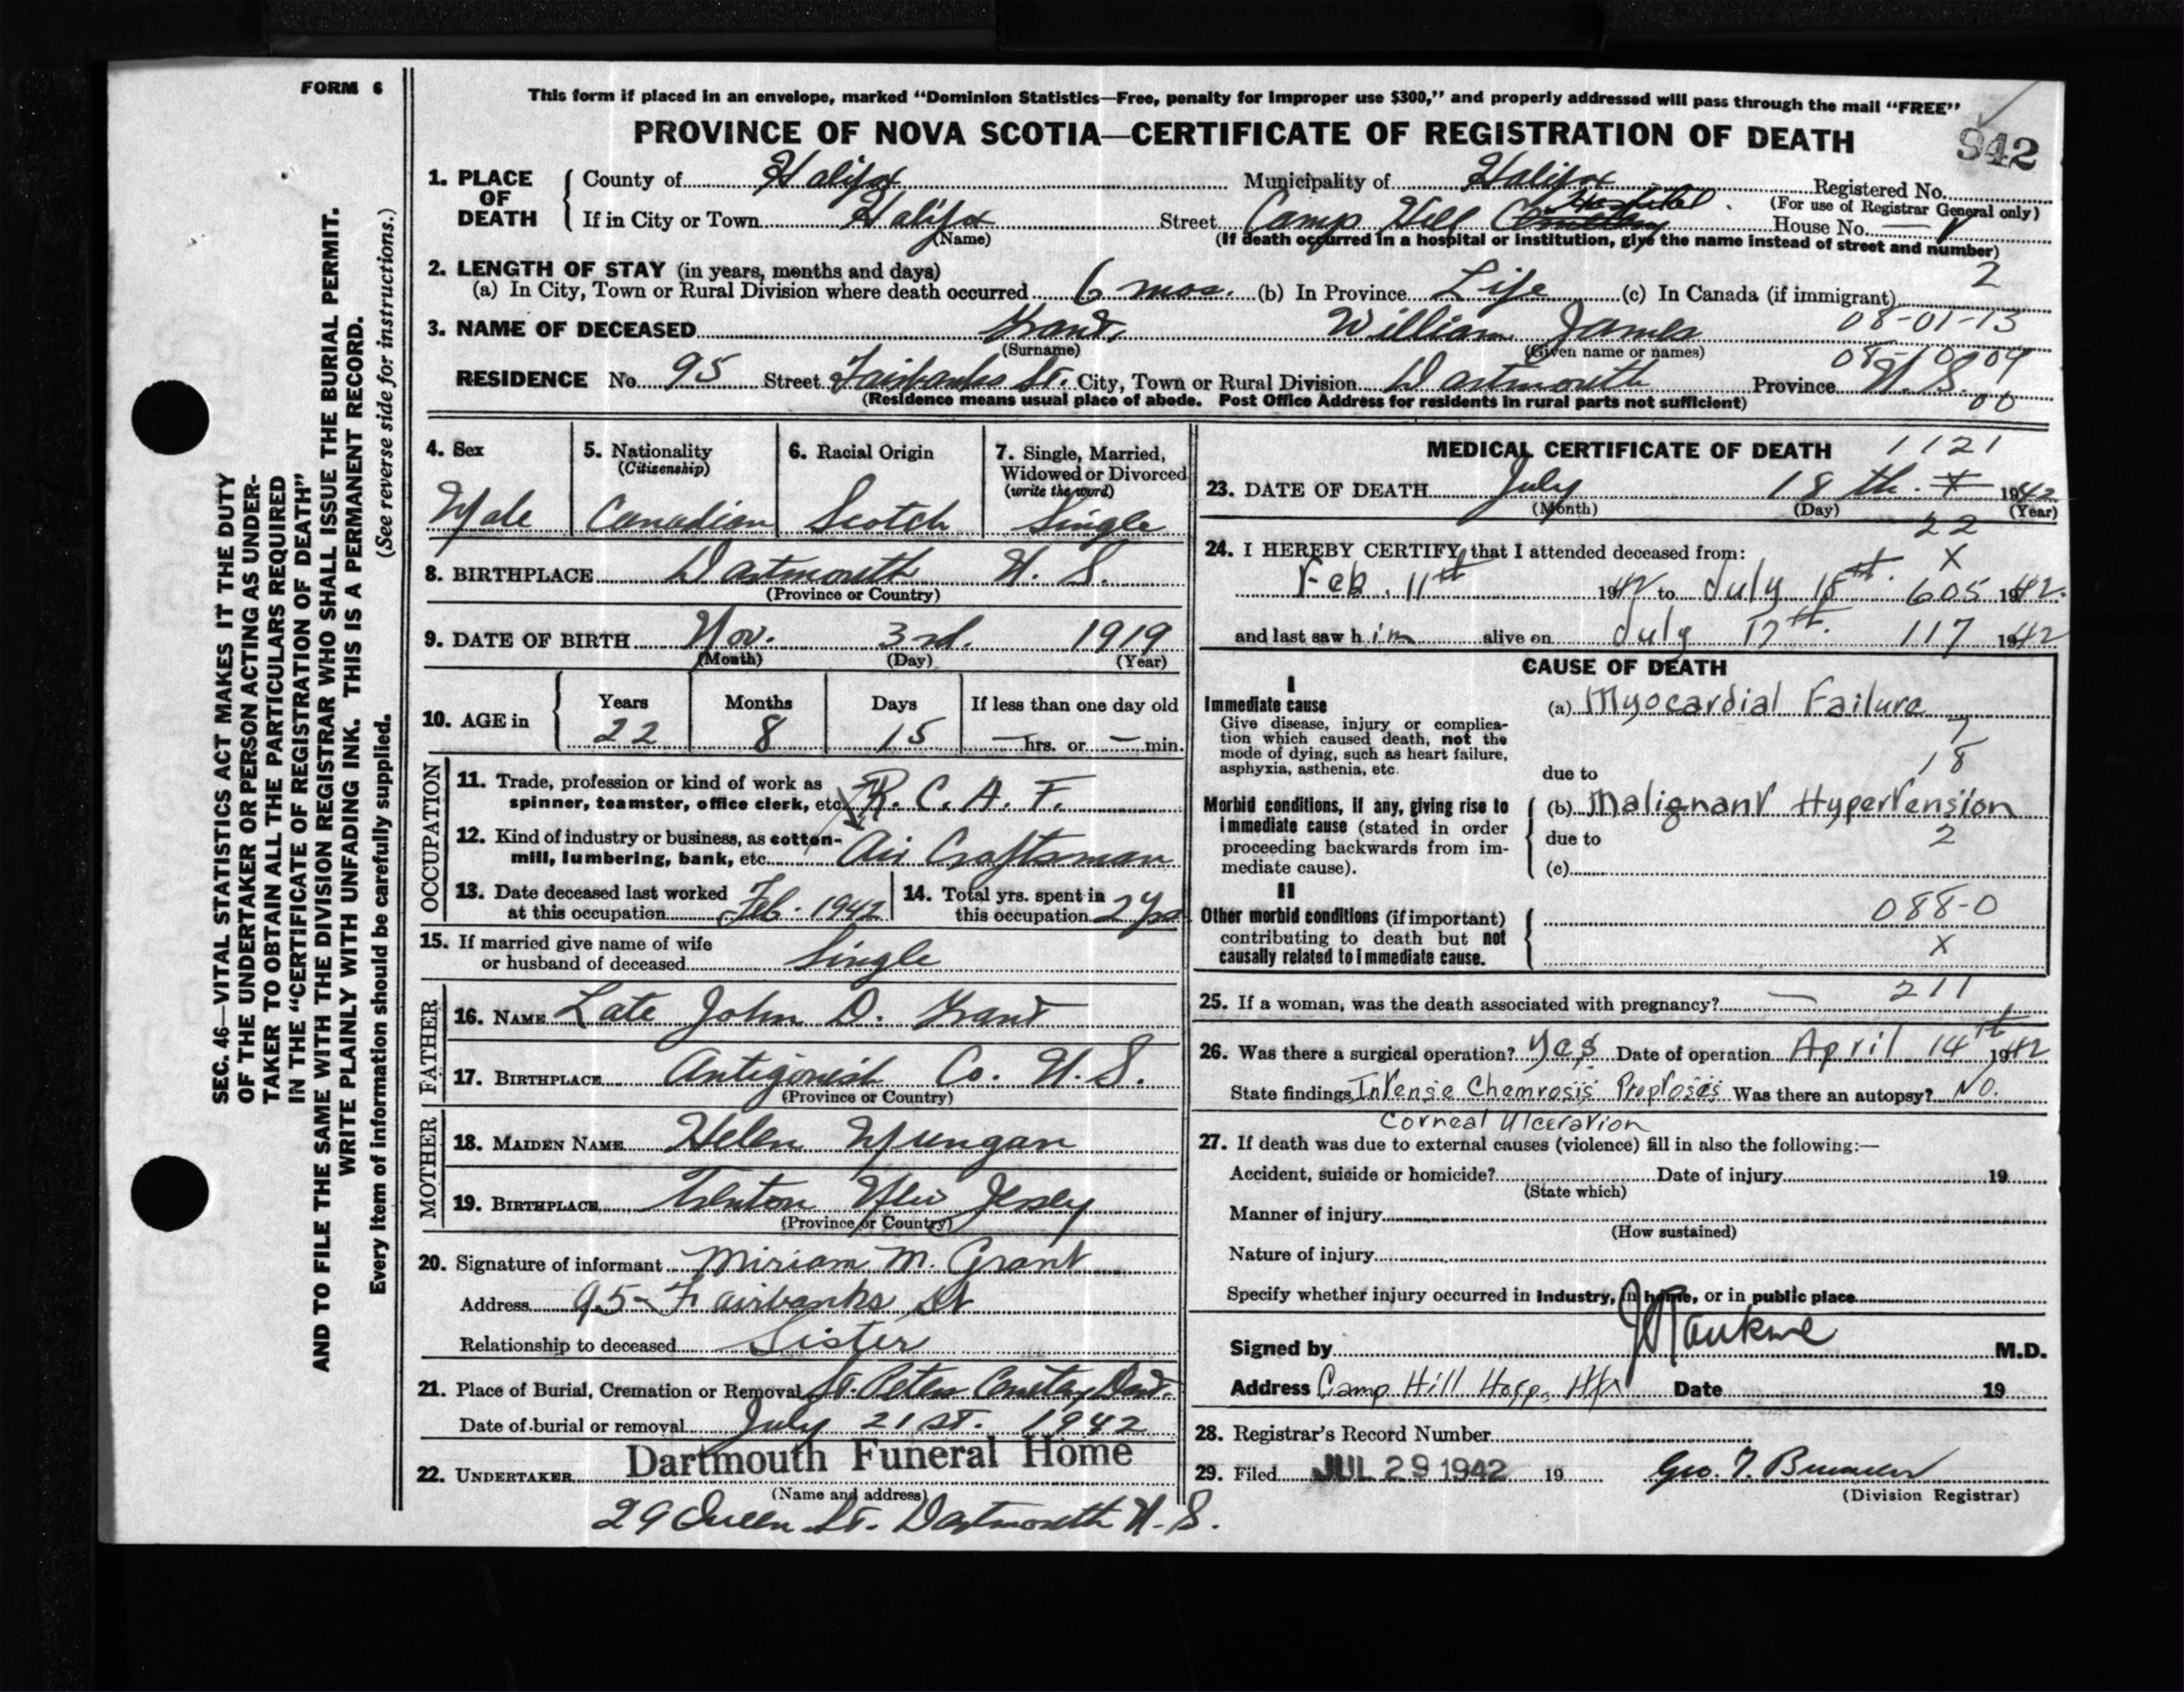 FORM 6
SEC. 46—VITAL STATISTICS ACT MAKES IT THE DUTY
OF THE UNDERTAKER OR PERSON ACTING AS UNDER-
TAKER TO OBTAIN ALL THE PARTICULARS REQUIRED
IN THE "CERTIFICATE OF REGISTRATION OF DEATH"
AND TO FILE THE SAME WITH THE DIVISION REGISTRAR WHO SHALL ISSUE THE BURIAL PERMIT.
WRITE PLAINLY WITH UNFADING INK. THIS IS A PERMANENT RECORD.
Every item of information should be carefully supplied. (See reverse side for instructions.)
This form if placed in an envelope, marked "Dominion Statistics—Free, penalty for improper use $300," and properly addressed will pass through the mail "FREE"
PROVINCE OF NOVA SCOTIA—CERTIFICATE OF REGISTRATION OF DEATH
942
1. PLACE OF DEATH County of Halifax Municipality of Halifax Registered No.
(For use of Registrar General only)
If in City or Town Halifax Street Camp Hill Cemetery Hospital House No. —
(Name) (If death occurred in a hospital or institution, give the name instead of street and number)
2. LENGTH OF STAY (in years, months and days) 2
(a) In City, Town or Rural Division where death occurred 6 mos. (b) In Province Life (c) In Canada (if immigrant)
3. NAME OF DECEASED Grant, William James 08-01-13
(Surname) (Given name or names) 08-10909
RESIDENCE No. 95 Street Fairbanks St. City, Town or Rural Division Dartmouth Province N. S.
(Residence means usual place of abode. Post Office Address for residents in rural parts not sufficient) 00
4. Sex 5. Nationality (Citizenship) 6. Racial Origin 7. Single, Married, Widowed or Divorced (write the word)
Male Canadian Scotch Single
8. BIRTHPLACE Dartmouth N. S.
(Province or Country)
9. DATE OF BIRTH Nov. 3rd. 1919
(Month) (Day) (Year)
10. AGE in Years Months Days If less than one day old
22 8 15 — hrs. or — min.
OCCUPATION
11. Trade, profession or kind of work as
spinner, teamster, office clerk, etc. R. C. A. F.
12. Kind of industry or business, as cotton-
mill, lumbering, bank, etc. Air Craftsman
13. Date deceased last worked
at this occupation Feb. 1942
14. Total yrs. spent in
this occupation 2 yrs
15. If married give name of wife
or husband of deceased Single
FATHER
16. NAME Late John D. Grant
17. BIRTHPLACE Antigonish Co. N. S.
(Province or Country)
MOTHER
18. MAIDEN NAME Helen Mungan
19. BIRTHPLACE Trenton New Jersey
(Province or Country)
20. Signature of informant Miriam M. Grant
Address 95 - Fairbanks St
Relationship to deceased Sister
21. Place of Burial, Cremation or Removal St. Peters Cemetery Dart.
Date of burial or removal July 21st. 1942
22. UNDERTAKER Dartmouth Funeral Home
(Name and address)
29 Queen St. Dartmouth N. S.
MEDICAL CERTIFICATE OF DEATH 1121
23. DATE OF DEATH July 18th. 1942
(Month) (Day) (Year)
22
24. I HEREBY CERTIFY that I attended deceased from: X
Feb. 11th 1942 to July 18th. 605 1942.
and last saw him alive on July 17th. 117 1942
CAUSE OF DEATH
I
Immediate cause
Give disease, injury or complica-
tion which caused death, not the
mode of dying, such as heart failure,
asphyxia, asthenia, etc.
(a) Myocardial Failure
7
18
due to
Morbid conditions, if any, giving rise to
immediate cause (stated in order
proceeding backwards from im-
mediate cause).
(b) Malignant Hypertension
due to 2
(c)
II
Other morbid conditions (if important)
contributing to death but not
causally related to immediate cause.
088-0
X
25. If a woman, was the death associated with pregnancy? — 211
26. Was there a surgical operation? Yes Date of operation April 14th 1942
State findings Intense Chemrosis Proptosis Was there an autopsy? No.
Corneal Ulceration
27. If death was due to external causes (violence) fill in also the following:—
Accident, suicide or homicide? Date of injury 19
(State which)
Manner of injury
(How sustained)
Nature of injury
Specify whether injury occurred in industry, in home, or in public place
Signed by M.D.
Address Camp Hill Hosp. Hfx Date 19
28. Registrar's Record Number
29. Filed JUL 29 1942 19 Geo. T.
(Division Registrar)